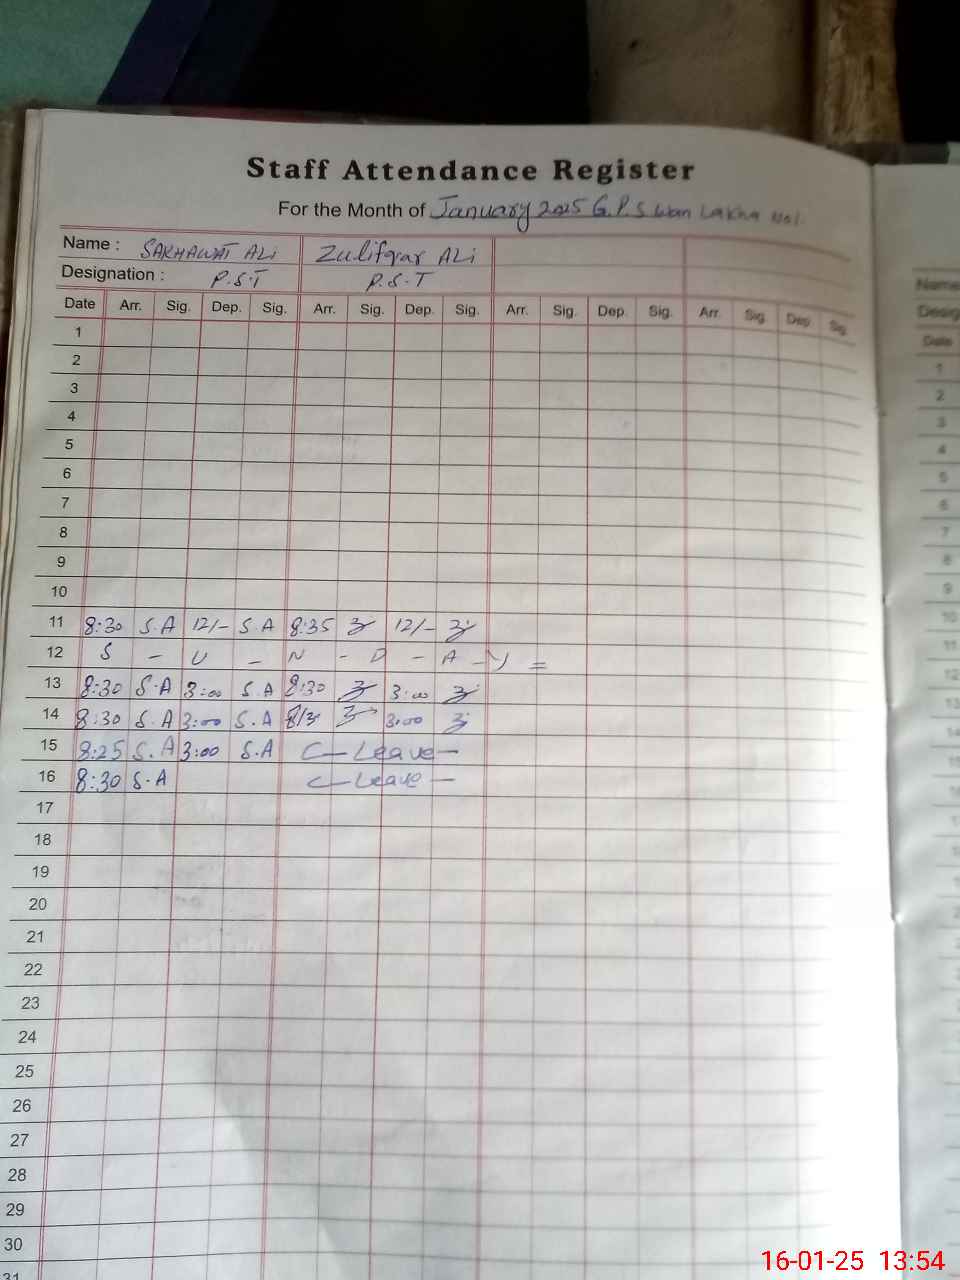 Staff Attendance Register
For the Month of January 2025 G.P.S Wan Lakha No1.
Name : SAKHAWAT ALi Zulifqar ALi
Designation : P.S.T P.S.T
Date Arr. Sig. Dep. Sig. Arr. Sig. Dep. Sig. Arr. Sig. Dep. Sig. Arr. Sig. Dep. Sig.
1
2
3
4
5
6
7
8
9
10
11 8:30 S.A 12/- S.A 8:35 12/-
12 S - U - N - D - A - Y =
13 8:30 S.A 3:00 S.A 8:30 3:00
14 8:30 S.A 3:00 S.A 3:00
15 8:25 S.A 3:00 S.A C - Leave -
16 8:30 S.A C - Leave -
17
18
19
20
21
22
23
24
25
26
27
28
29
30
31
Name
Desig
Date
1
2
3
4
5
6
7
8
9
10
11
12
13
14
16-01-25 13:54